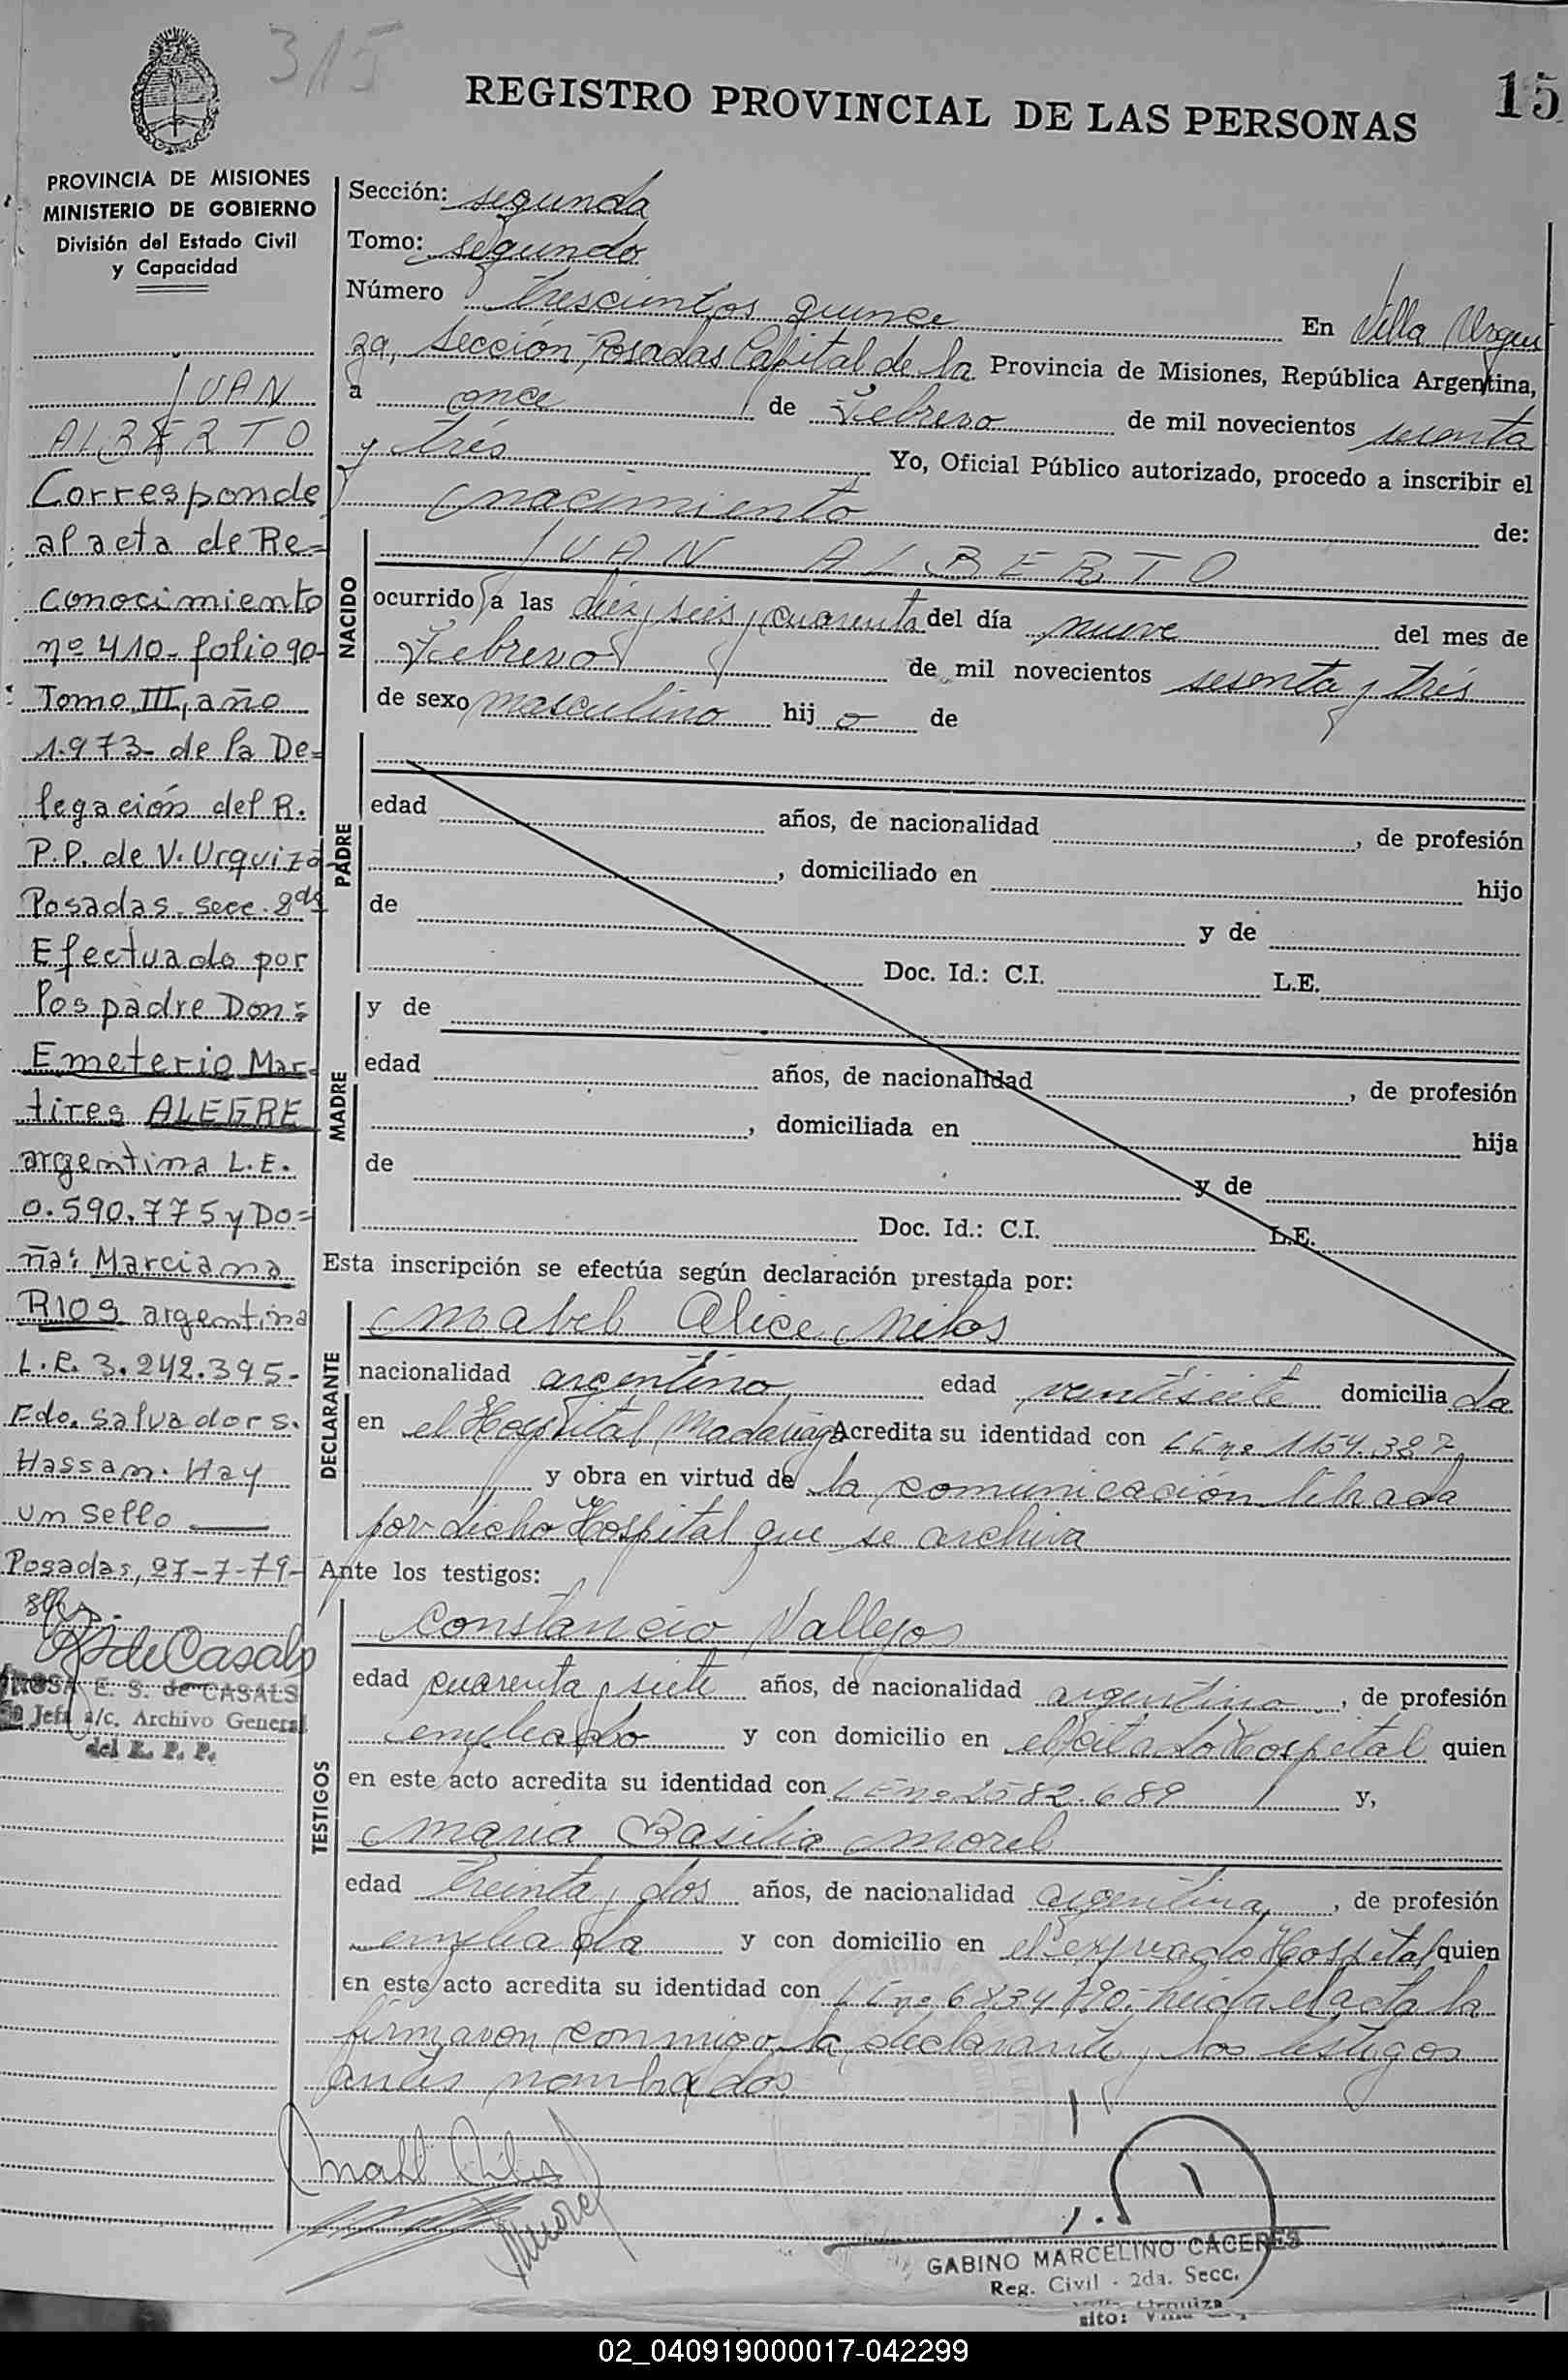 315
15
REGISTRO PROVINCIAL DE LAS PERSONAS
PROVINCIA DE MISIONES
MINISTERIO DE GOBIERNO
División del Estado Civil
y Capacidad
JUAN
ALBERTO
Corresponde
al acta de Re=
conocimiento
nº 410- folio 90-
Tomo III, año
1.973- de la De=
legación del R.
P.P. de V. Urquiza
Posadas- secc. 2da
Efectuado por
los padre Don:
Emeterio Mar-
tires ALEGRE
argentina L.E.
0.590.775 y Do=
ña: Marciana
RIOS argentina
L.C. 3.242.395-
Fdo. Salvador S.
Hassam. Hay
un sello
Posadas, 27-7-79-
RS de Casals
ROSA E. S. de CASALS
Jefa a/c. Archivo General
del R. P. P.
Sección: segunda
Tomo: segundo
Número trescientos quince En Villa Urqui
za, Sección, Posadas Capital de la Provincia de Misiones, República Argentina,
a once de Febrero de mil novecientos sesenta
y trés Yo, Oficial Público autorizado, procedo a inscribir el
nacimiento de:
NACIDO
JUAN ALBERTO
ocurrido a las diez y seis y cuarenta del día nueve del mes de
Febrero de mil novecientos sesenta y trés
de sexo masculino hijo de
PADRE
edad años, de nacionalidad , de profesión
, domiciliado en hijo
de y de
Doc. Id.: C.I. L.E.
MADRE
y de
edad años, de nacionalidad , de profesión
, domiciliada en hija
de y de
Doc. Id.: C.I. L.E.
Esta inscripción se efectúa según declaración prestada por:
DECLARANTE
Mabel Alice
nacionalidad argentina edad ventisiete domicilia da
en el Hospital Madariaga Acredita su identidad con LC nº 1154.387,
y obra en virtud de la comunicación librada
por dicho Hospital que se archiva
Ante los testigos:
TESTIGOS
Constancio Vallejos
edad cuarenta y siete años, de nacionalidad argentino , de profesión
empleado y con domicilio en el citado Hospital quien
en este acto acredita su identidad con LE nº 2582.689 y,
Maria Basilia Morel
edad treinta y dos años, de nacionalidad argentina , de profesión
empleada y con domicilio en el expresado Hospital quien
en este acto acredita su identidad con LC nº 6834790.- Leida el acta la
firmaron conmigo, la declarante y los testigos
antes nombrados
Morel
GABINO MARCELINO CACERES
Reg. Civil - 2da. Secc.
Urquiza
sito: Villa
02_040919000017-042299